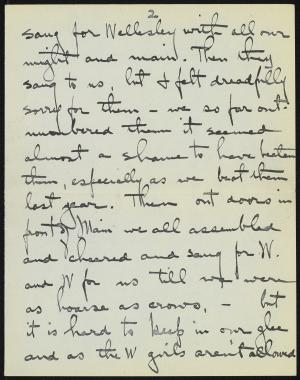 2
sang for Wellesley with all our
might and main. Then they
sang to us, but I felt dreadfully
sorry for them - we so far out-
numbered them it seemed
almost a shame to have beaten
them, especially as we beat them
last year. Then out doors in
front of Main we all assembled
and cheered and sang for W.
and W for us till we were
as hoarse as crows, - but
it is hard to keep in our glee
and as the W girls aren't allowed